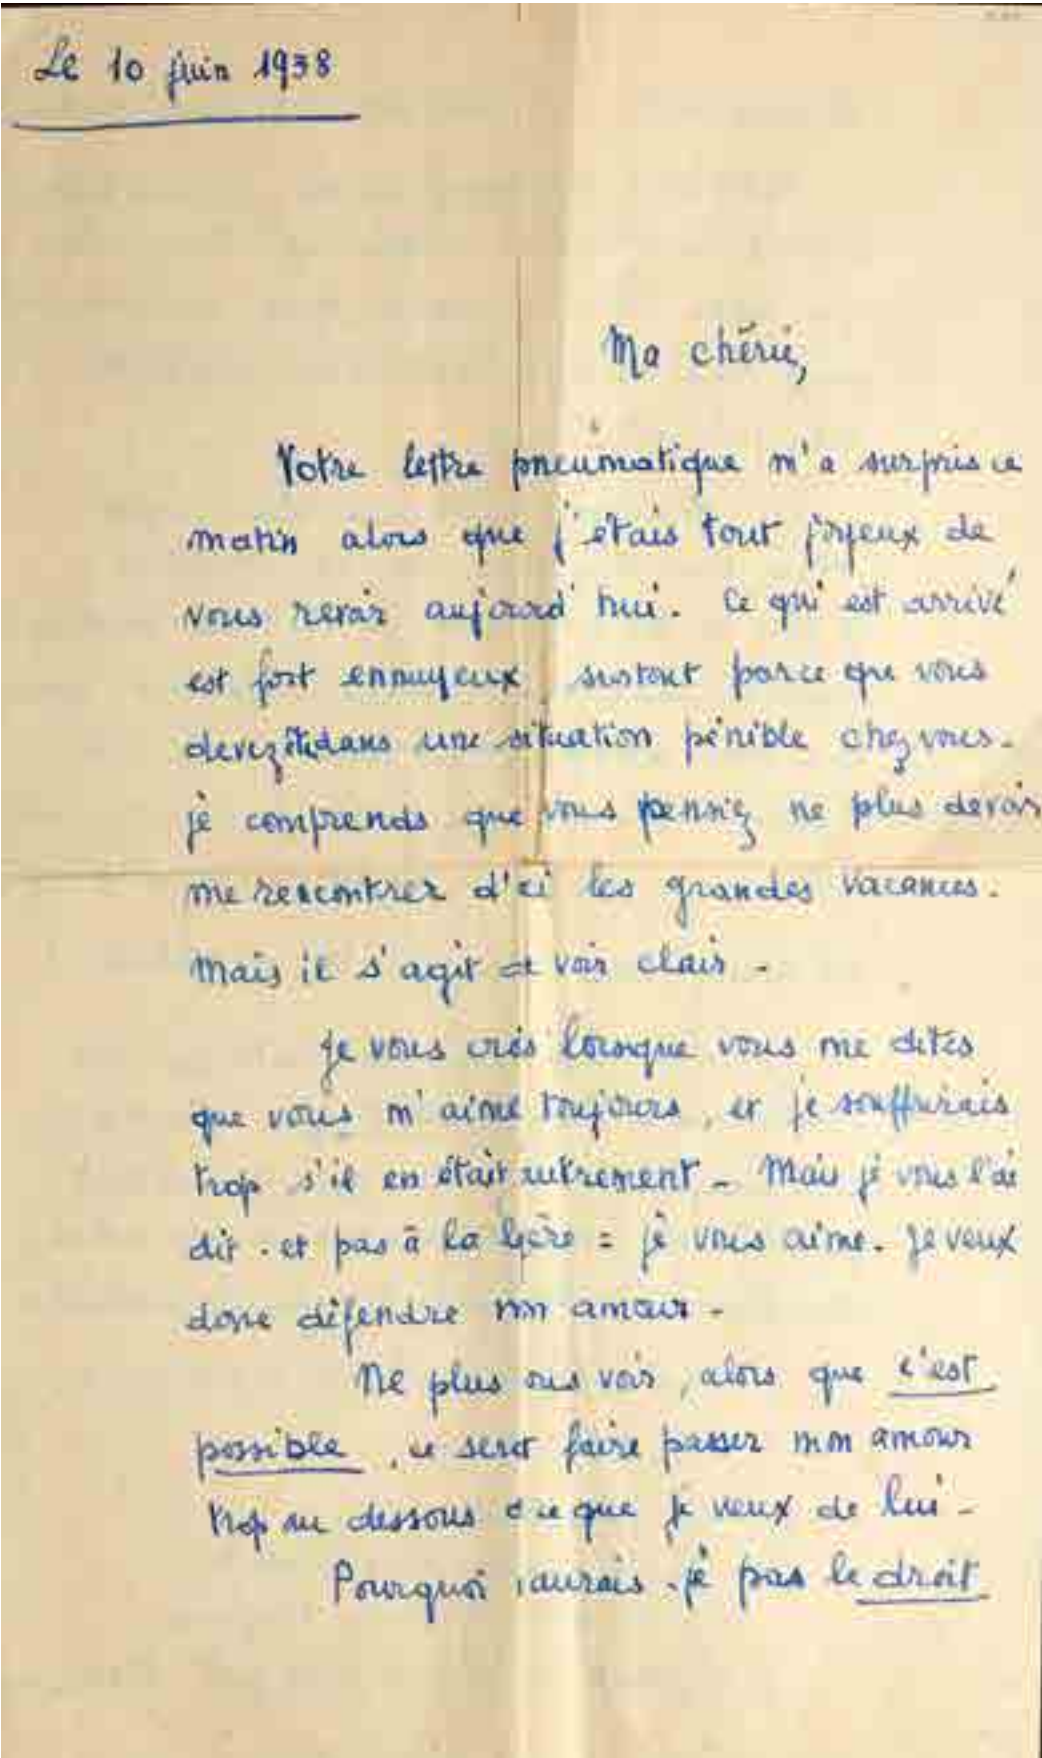 Le 10 juin 1938
Ma chérie,
Votre lettre pneumatique m'a surpris ce
matin alors que j'étais tout joyeux de
vous revoir aujourd'hui. Ce qui est arrivé
est fort ennuyeux, surtout parce que vous
devez être dans une situation pénible chez vous.
je comprends que vous pensiez ne plus devoir
me rencontrer d'ici les grandes vacances.
Mais il s'agit de voir clair.
Je vous crois lorsque vous me dites
que vous m'aimez toujours, et je souffrirais
trop s'il en était autrement. Mais je vous l'ai
dit. et pas à la légère : je vous aime. Je veux
donc défendre mon amour.
Ne plus nous voir, alors que c'est
possible, ce serait faire passer mon amour
trop au dessous de ce que je veux de lui.
Pourquoi n'aurais-je pas le droit